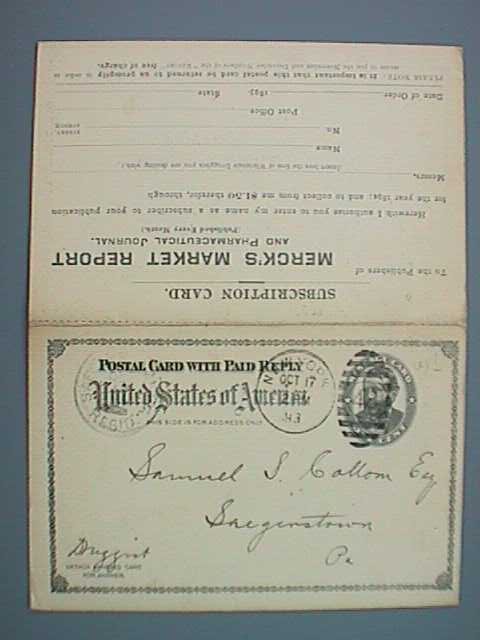 SUBSCRIPTION CARD.
To the Publishers of
MERCK'S MARKET REPORT
AND PHARMACEUTICAL JOURNAL.
(Published Every Month.)
Herewith I authorize you to enter my name as a subscriber to your publication
for the year 1894, and to collect $1.50 from me, therefor, through
Messrs.
(Insert here the firm of Wholesale Druggists you are dealing with.)
Name
No.
Post Office
State
Date of Order 1893
PLEASE NOTE: It is important that this postal card be returned to us promptly in order to
secure to you the November and December Numbers of the "REPORT" free of charge.
POSTAL CARD WITH PAID REPLY
United States of America
THIS SIDE IS FOR ADDRESS ONLY
NEW YORK
OCT 17
93
Samuel S. Collom Esq
Saegerstown
Pa
Druggist
DETACH ANNEXED CARD
FOR ANSWER